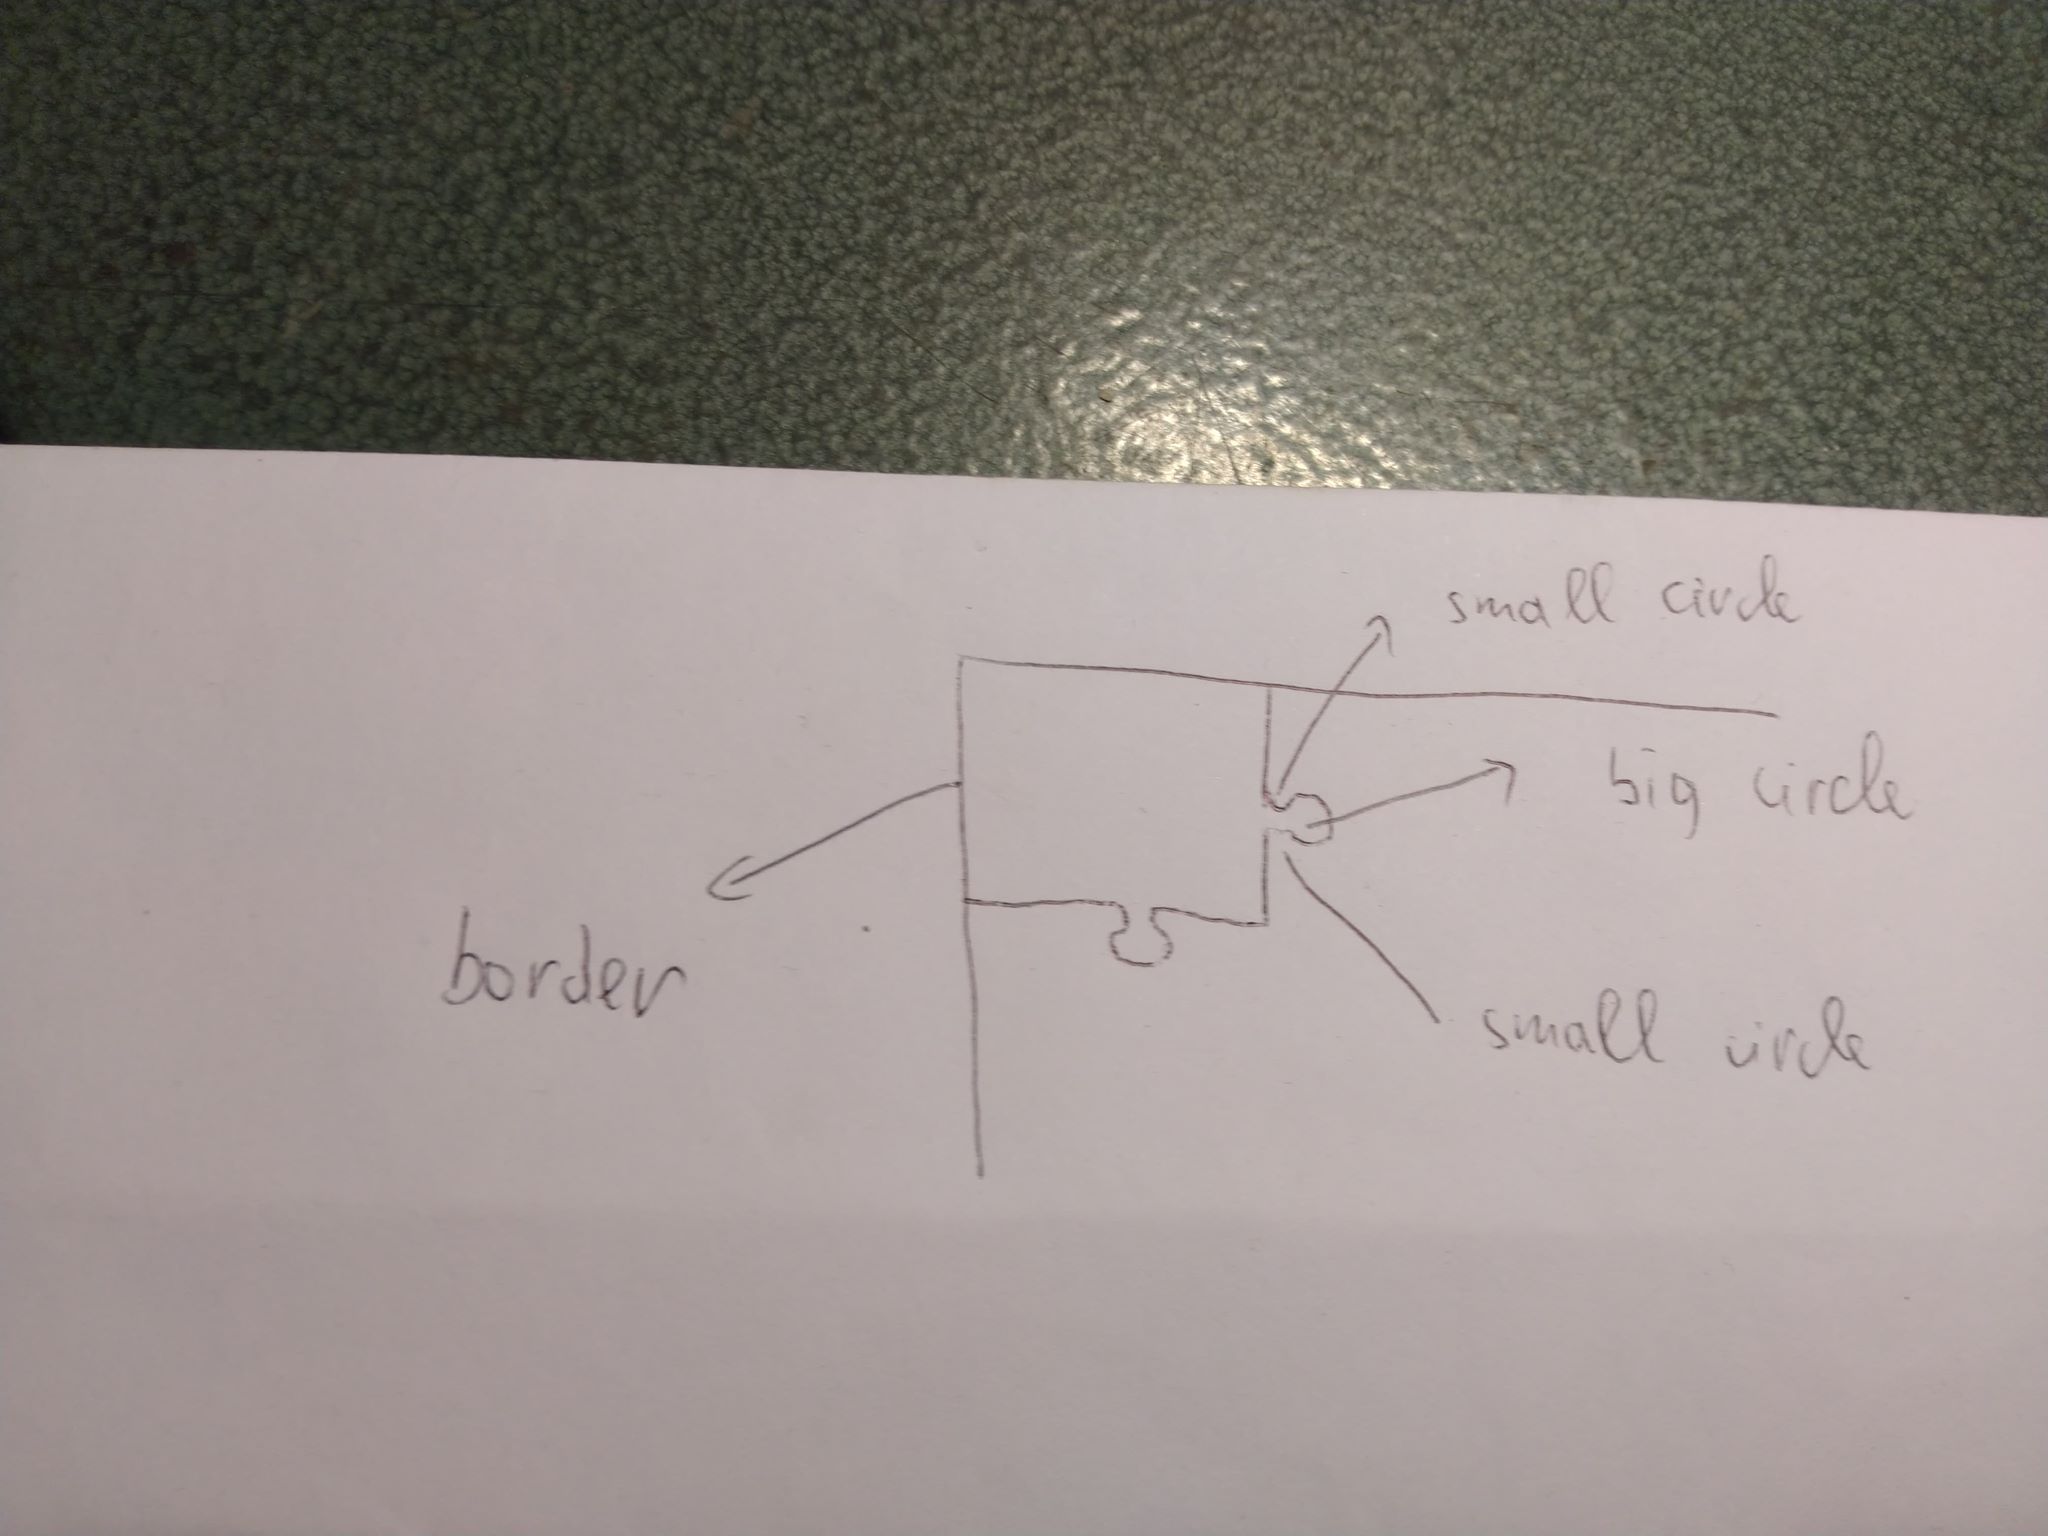 small circle
big circle
border
small circle